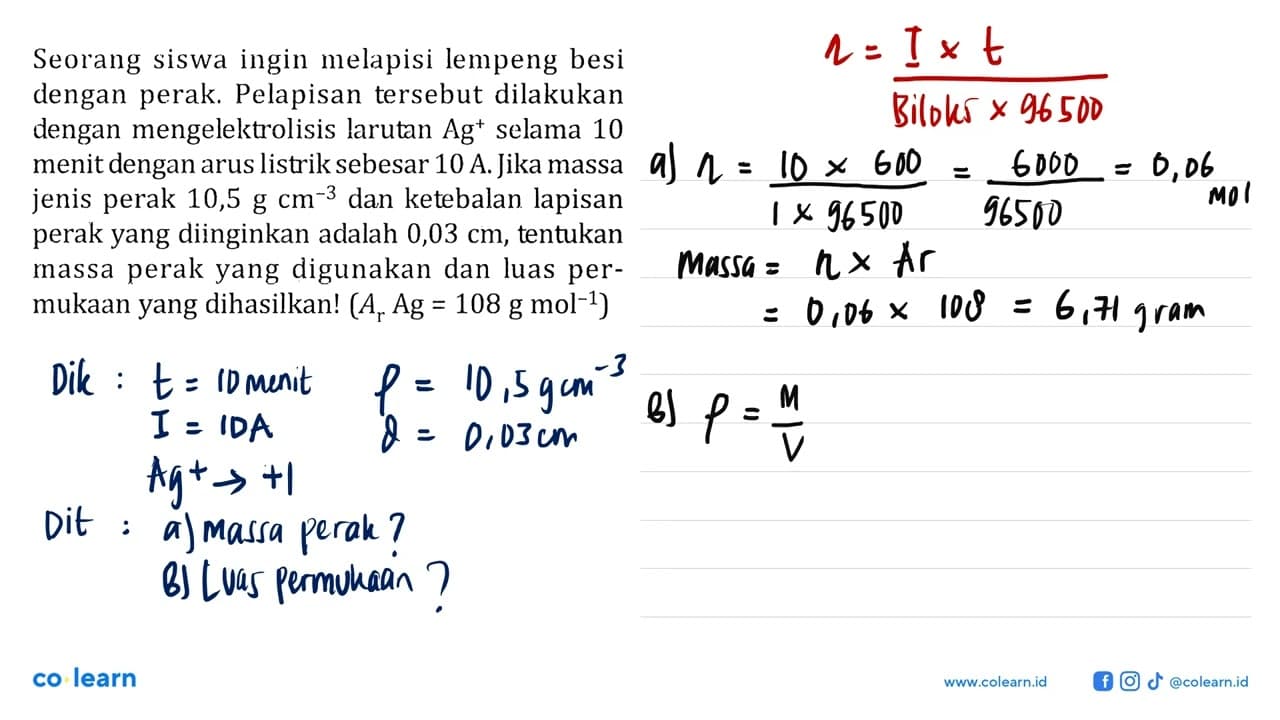 Seorang siswa ingin melapisi lempeng besi
dengan perak. Pelapisan tersebut dilakukan
dengan mengelektrolisis larutan Ag⁺ selama 10
menit dengan arus listrik sebesar 10 A. Jika massa
jenis perak 10,5 g cm⁻³ dan ketebalan lapisan
perak yang diinginkan adalah 0,03 cm, tentukan
massa perak yang digunakan dan luas per-
mukaan yang dihasilkan! (Aᵣ Ag = 108 g mol⁻¹)
Dik : t = 10 menit ρ = 10,5 g cm⁻³
I = 10A d = 0,03 cm
Ag⁺ → +1
Dit : a) Massa perak ?
B) Luas permukaan ?
n = I × t
Biloks × 96500
a) n = 10 × 600 = 6000 = 0,06
1 × 96500 96500 mol
Massa = n × Ar
= 0,06 × 108 = 6,71 gram
B) ρ = M
V
co·learn
www.colearn.id @colearn.id